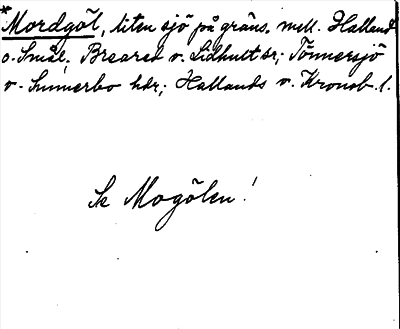 *Mordgöl, liten sjö på gräns. mell. Halland
o. Smål. Breared o. Lidhult sr; Tönnersjö
o. Sunnerbo hdr; Hallands o. Kronob. l.
Se Mogölen!